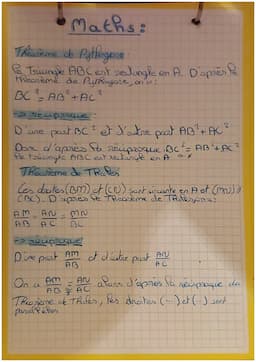 Maths:
Théorème de Pythagore
Le Triangle ABC est rectangle en A. D'après le
théorème de Pythagore, on a:
BC² = AB² + AC²
→ réciproque:
D'une part BC² et d'autre part AB² + AC²
Donc d'après la réciproque BC² = AB² + AC²
le triangle ABC est rectangle en A
Théorème de Thalès
Les droites (BM) et (CN) sont sécante en A et (MN) //
(BC). D'après le Théorème de Thalès on a:
AM/AB = AN/AC = MN/BC
→ réciproque
D'une part AM/AB et d'autre part AN/AC
On a AM/AB = AN/AC alors d'après la réciproque du
Théorème de Thalès, les droites (-) et (-) sont
parallèles